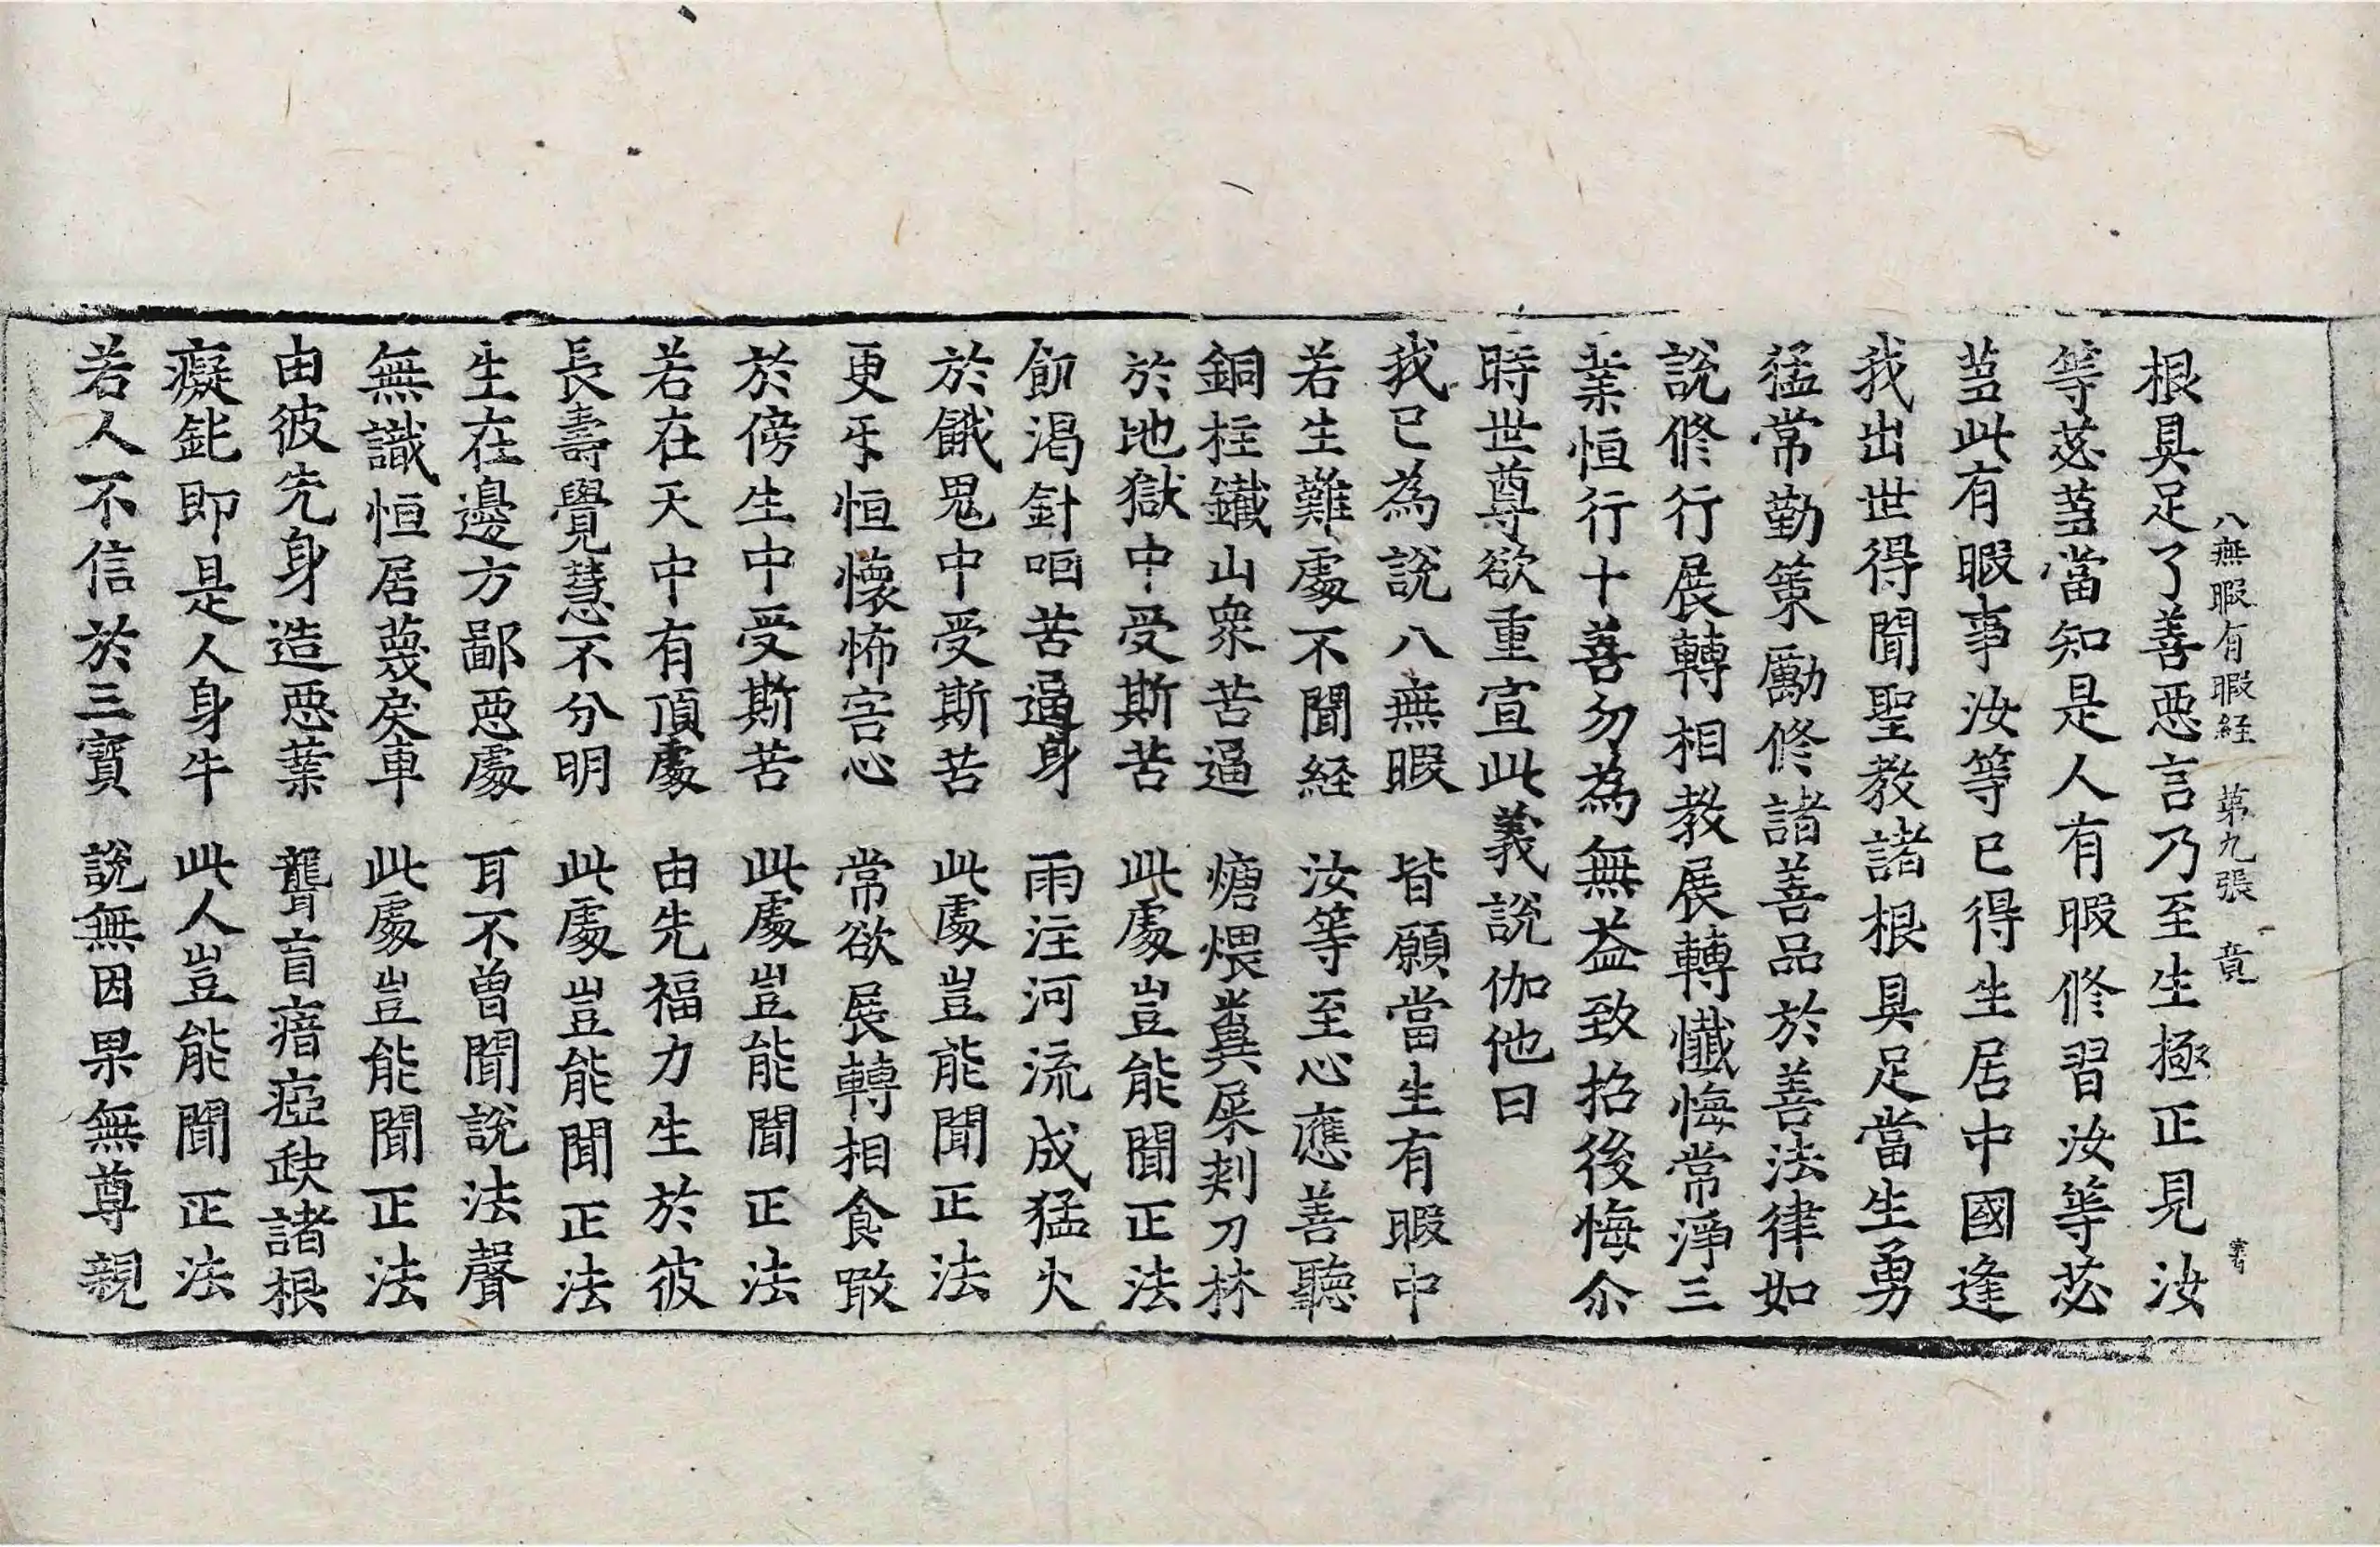 八無暇有暇経 第九張 竟
根具足了善惡言乃至生極正見汝
等苾蒭當知是人有暇修習汝等苾
蒭此有暇事汝等已得生居中國逢
我出世得聞聖教諸根具足當生勇
猛常勤策勵修諸善品於善法律如
說修行展轉相教展轉懺悔常淨三
業恒行十善勿為無益致招後悔尒
時世尊欲重宣此義說伽他曰
我已為說八無暇 皆願當生有暇中
若生難處不聞経 汝等至心應善聽
銅柱鐵山衆苦逼 煻煨糞屎剗刀林
於地獄中受斯苦 此處豈能聞正法
飢渴針咽苦逼身 雨注河流成猛火
於餓鬼中受斯苦 此處豈能聞正法
更㸦恒懷怖害心 常欲展轉相食噉
於傍生中受斯苦 此處豈能聞正法
若在天中有頂處 由先福力生於彼
長壽覺慧不分明 此處豈能聞正法
生在邊方鄙惡處 耳不曾聞說法聲
無識恒居蔑戾車 此處豈能聞正法
由彼先身造惡業 聾盲瘖瘂缺諸根
癡鈍即是人身牛 此人豈能聞正法
若人不信於三寳 說無因果無尊親